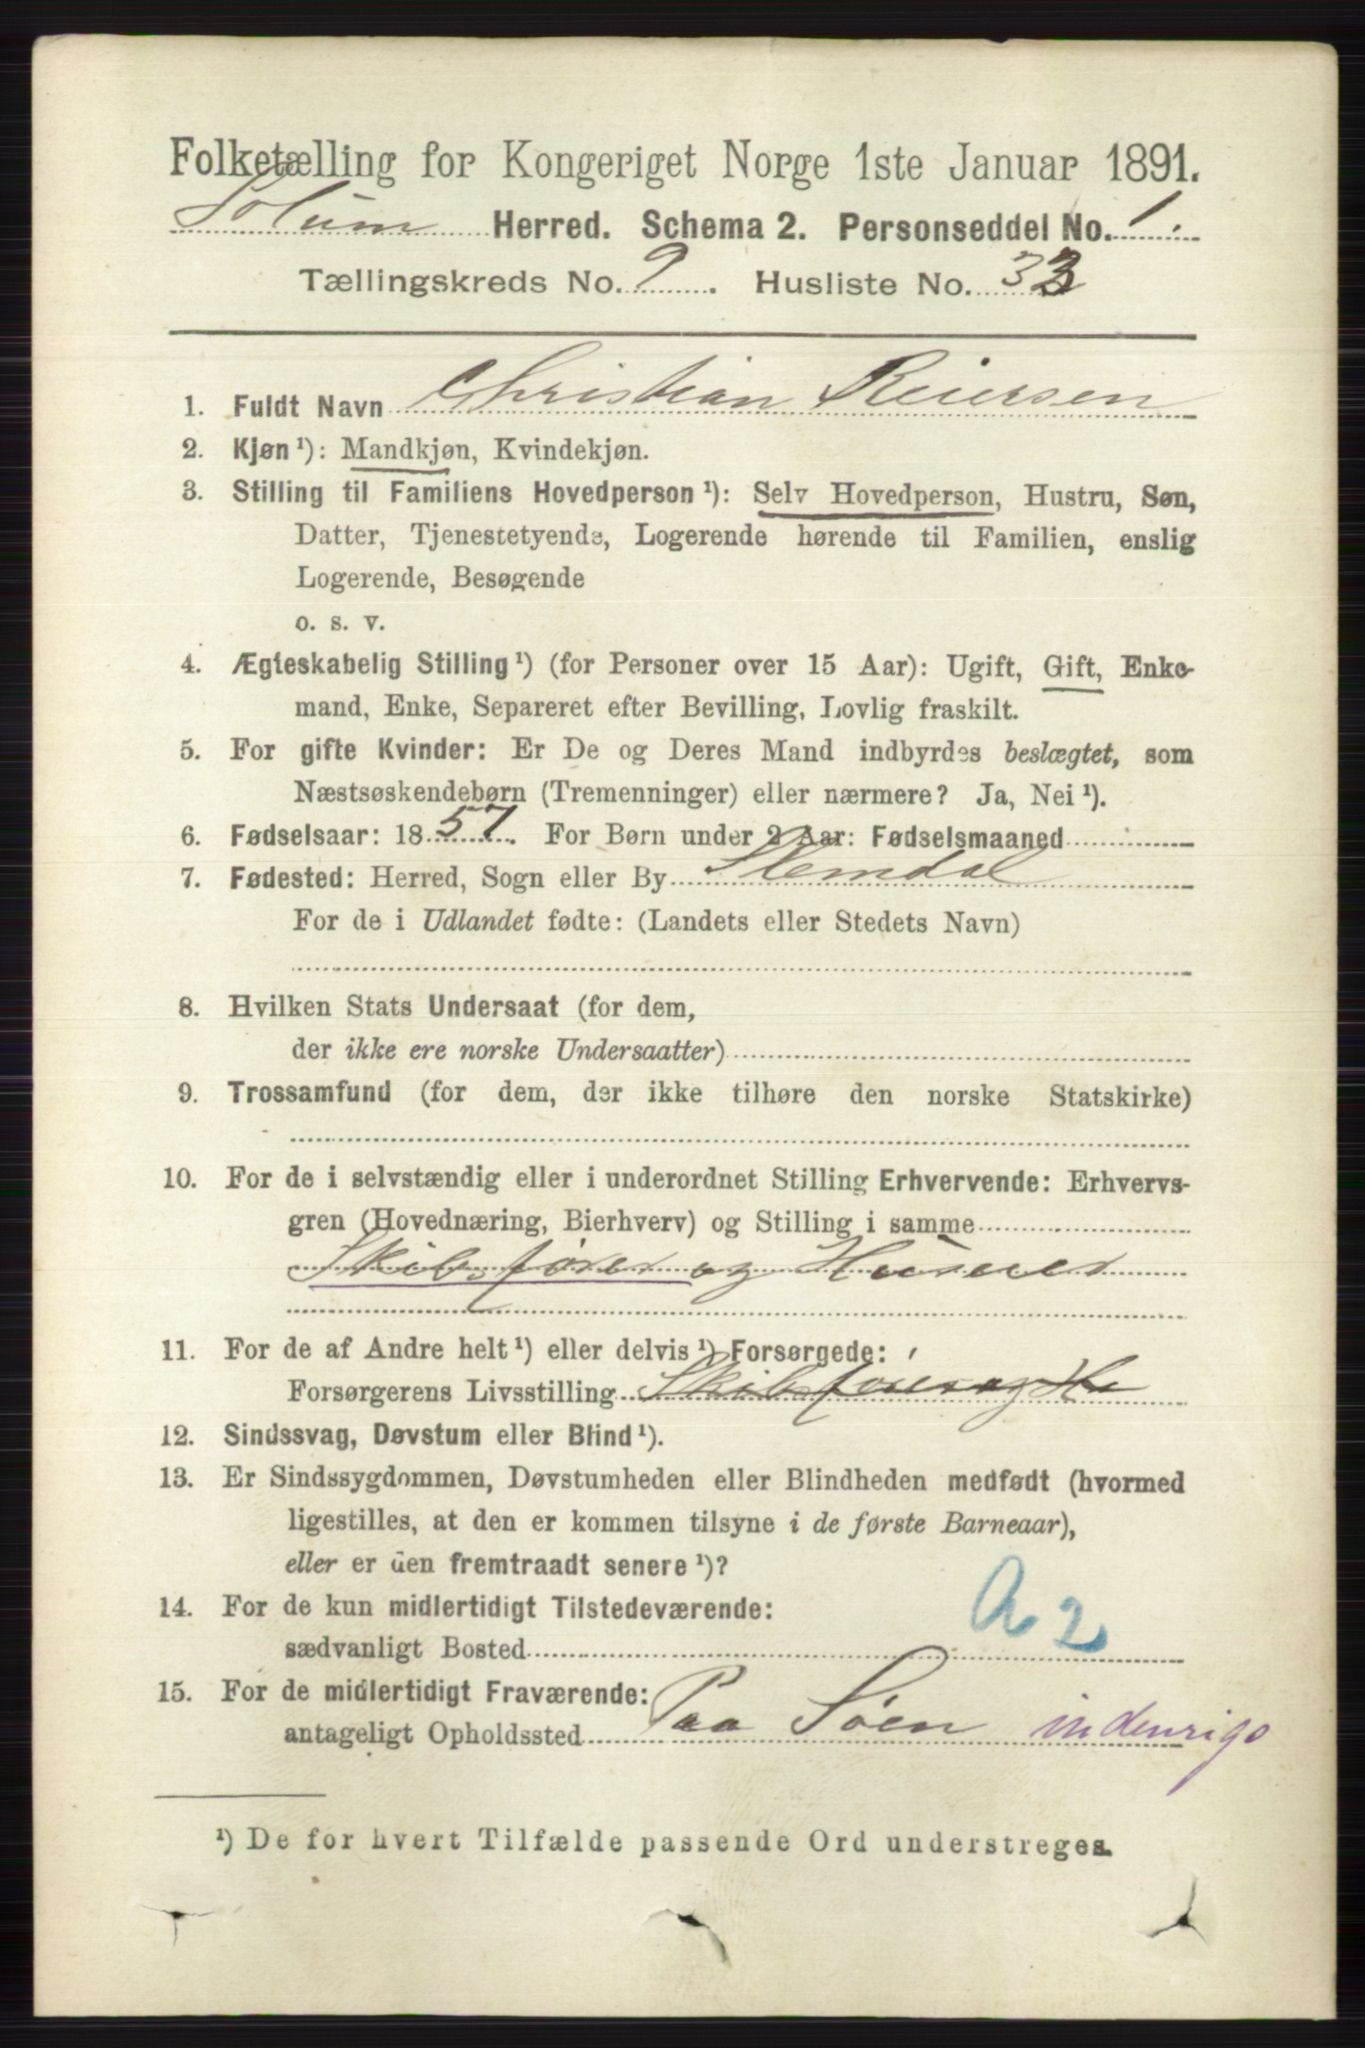 Folketælling for Kongeriget Norge 1ste Januar 1891.
Solum Herred. Schema 2. Personseddel No. 1.
Tællingskreds No. 9. Husliste No. 33
1. Fuldt Navn Christian Reiersen
2. Kjøn¹): Mandkjøn, Kvindekjøn.
3. Stilling til Familiens Hovedperson¹): Selv Hovedperson, Hustru, Søn,
Datter, Tjenestetyende, Logerende hørende til Familien, enslig
Logerende, Besøgende
o. s. v.
4. Ægteskabelig Stilling¹) (for Personer over 15 Aar): Ugift, Gift, Enke-
mand, Enke, Separeret efter Bevilling, Lovlig fraskilt.
5. For gifte Kvinder: Er De og Deres Mand indbyrdes beslægtet, som
Næstsøskendebørn (Tremenninger) eller nærmere? Ja, Nei¹).
6. Fødselsaar: 1857. For Børn under 2 Aar: Fødselsmaaned
7. Fødested: Herred, Sogn eller By Slemdal
For de i Udlandet fødte: (Landets eller Stedets Navn)
8. Hvilken Stats Undersaat (for dem,
der ikke ere norske Undersaatter)
9. Trossamfund (for dem, der ikke tilhøre den norske Statskirke)
10. For de i selvstændig eller i underordnet Stilling Erhvervende: Erhvervs-
gren (Hovednæring, Bierhverv) og Stilling i samme
Skibsfører og Huseier
11. For de af Andre helt¹) eller delvis¹) Forsørgede:
Forsørgerens Livsstilling Skibsfører og Hu
12. Sindssvag, Døvstum eller Blind¹).
13. Er Sindssygdommen, Døvstumheden eller Blindheden medfødt (hvormed
ligestilles, at den er kommen tilsyne i de første Barneaar),
eller er den fremtraadt senere¹)?
14. For de kun midlertidigt Tilstedeværende:
sædvanligt Bosted
A 2
15. For de midlertidigt Fraværende:
antageligt Opholdssted Paa Søen indenrigs
¹) De for hvert Tilfælde passende Ord understreges.